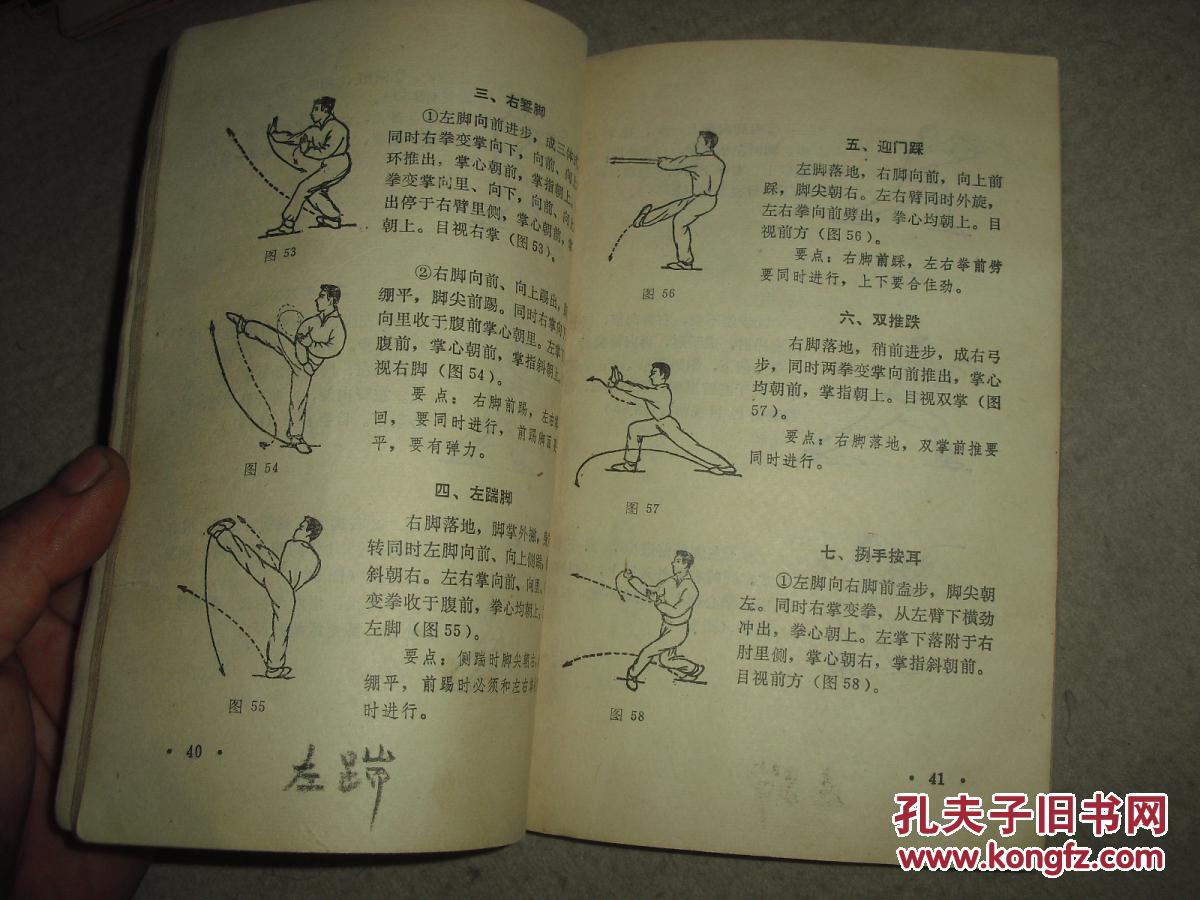 三、右蹬脚
①左脚向前进步，成三体式
同时右拳变掌向下，向前、向上
环推出，掌心朝前，掌指朝上。
拳变掌向里、向下，向前、向上
出停于右臂里侧，掌心朝前，掌
朝上。目视右掌（图53）。
图 53
②右脚向前、向上踢出，
绷平，脚尖前踢。同时右掌向下
向里收于腹前掌心朝里。左掌
腹前，掌心朝前，掌指斜朝上
视右脚（图54）。
要点：右脚前踢，左右
回，要同时进行，前踢脚面要
平，要有弹力。
图 54
四、左踹脚
右脚落地，脚掌外
转同时左脚向前、向上侧踹，
斜朝右。左右掌向前、向里
变拳收于腹前，拳心均朝上。
左脚（图55）。
要点：侧踹时脚尖朝右
绷平，前踢时必须和左右
时进行。
图 55
· 40 ·
左踹
五、迎门踩
左脚落地，右脚向前，向上前
踩，脚尖朝右。左右臂同时外旋，
左右拳向前劈出，拳心均朝上。目
视前方（图56）。
要点：右脚前踩，左右拳前劈
要同时进行，上下要合住劲。
图 56
六、双推跌
右脚落地，稍前进步，成右弓
步，同时两拳变掌向前推出，掌心
均朝前，掌指朝上。目视双掌（图
57）。
要点：右脚落地，双掌前推要
同时进行。
图 57
七、捌手按耳
①左脚向右脚前盖步，脚尖朝
左。同时右掌变拳，从左臂下横劲
冲出，拳心朝上。左掌下落附于右
肘里侧，掌心朝右，掌指斜朝前。
目视前方（图58）。
图 58
· 41 ·
孔夫子旧书网
www.kongfz.com